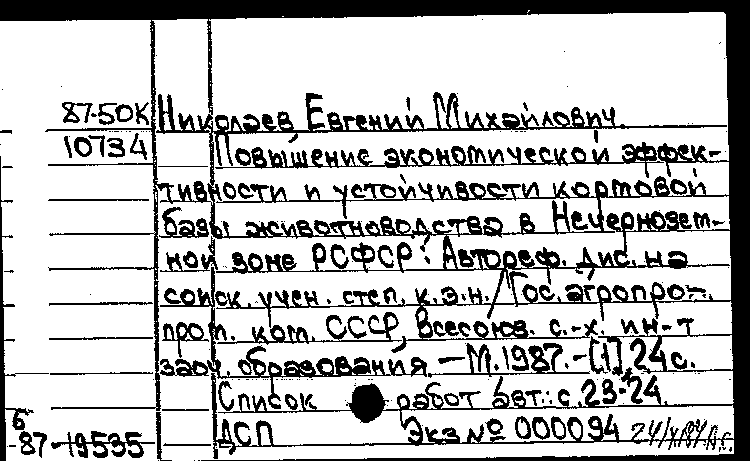 87-50К Николаев Евгений Михайлович.
10734 Повышение экономической эффек-
тивности и устойчивости кормовой
базы животноводства в Нечернозем-
ной зоне РСФСР: Автореф. дис. на
соиск. учен. степ. к.э.н. / Гос. агропро-
пром. ком. СССР, Всесоюз. с.-х. ин-т
заоч. образования. — М. 1987. - [1], 24 с.
Список работ авт.: с. 23-24.
ДСП Экз № 000094
б
87-19535